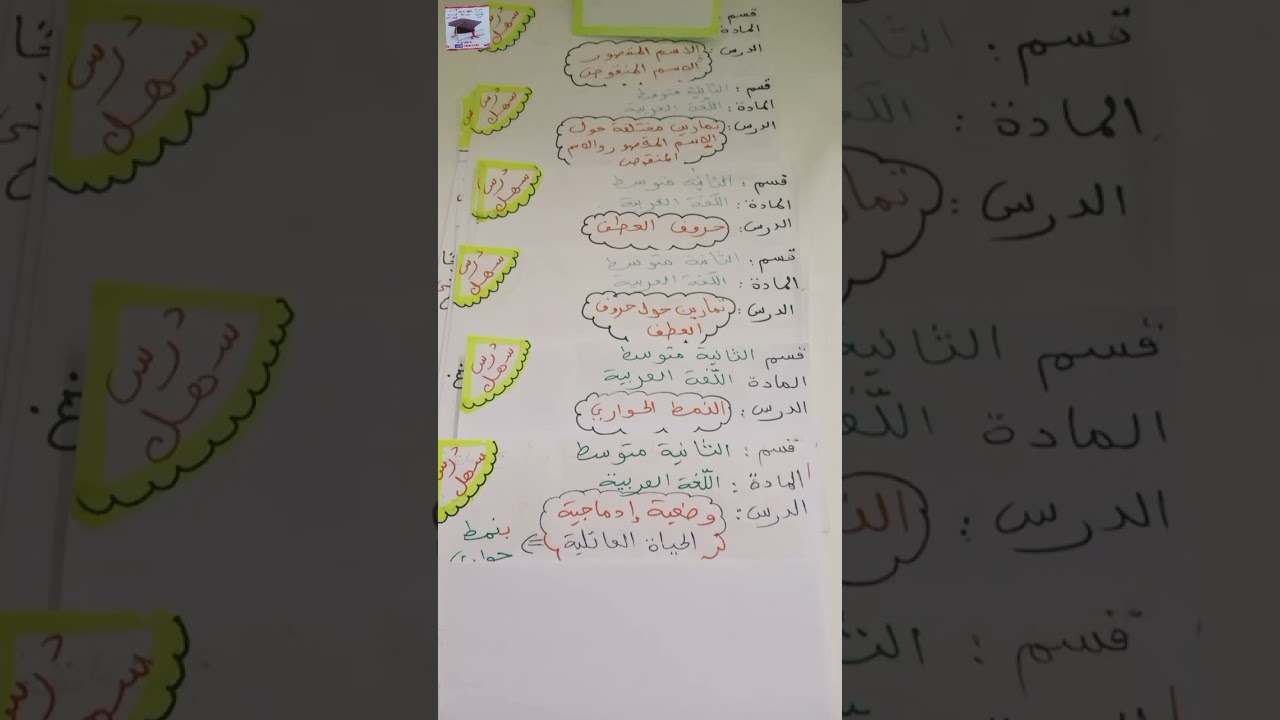 قسم :
المادة
الدرس :
الاسم المقصور
الاسم المنقوص
درس سهل
قسم : الثانية متوسط
المادة : اللّغة العربية
الدرس :
تمارين مختلفة حول
الاسم المقصور والاسم
المنقوص
درس سهل
قسم : الثانية متوسط
المادة : اللّغة العربية
الدرس : حروف العطف
درس سهل
قسم : الثانية متوسط
المادة : اللّغة العربية
الدرس : تمارين حول حروف
العطف
درس سهل
قسم الثانية متوسط
المادة اللّغة العربية
الدرس : النمط الحواري
درس سهل
قسم : الثانية متوسط
المادة : اللّغة العربية
الدرس : وضعية إدماجية
الحياة العائلية
بنمط
درس سهل